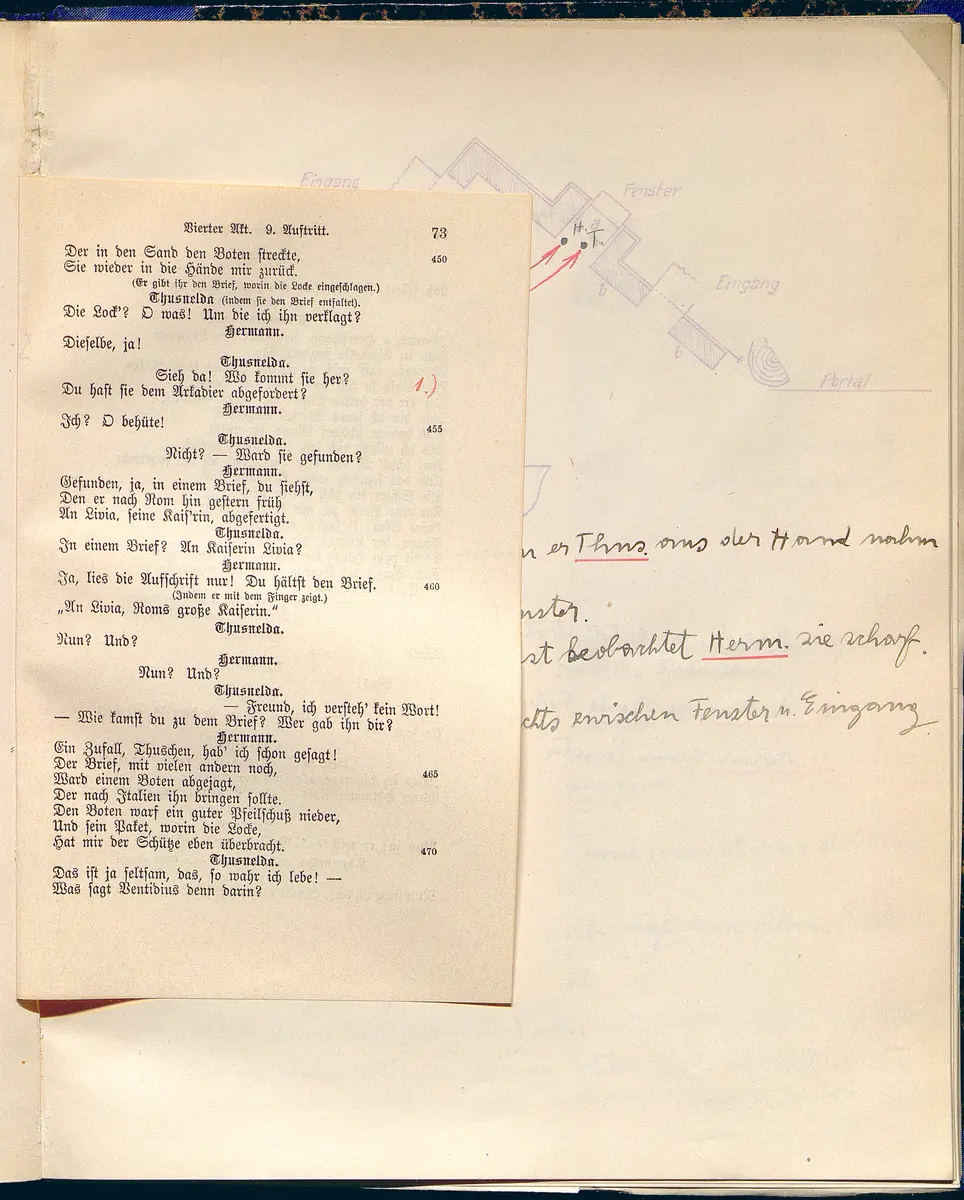 Vierter Akt. 9. Auftritt.
73
Der in den Sand den Boten streckte,
450
Sie wieder in die Hände mir zurück.
(Er gibt ihr den Brief, worin die Locke eingeschlagen.)
Thusnelda (indem sie den Brief entfaltet).
Die Lock'? O was! Um die ich ihn verklagt?
Hermann.
Dieselbe, ja!
Thusnelda.
Sieh da! Wo kommt sie her?
1.)
Du hast sie dem Arkadier abgefordert?
Hermann.
Ich? O behüte!
455
Thusnelda.
Nicht? — Ward sie gefunden?
Hermann.
Gefunden, ja, in einem Brief, du siehst,
Den er nach Rom hin gestern früh
An Livia, seine Kais'rin, abgefertigt.
Thusnelda.
In einem Brief? An Kaiserin Livia?
Hermann.
Ja, lies die Aufschrift nur! Du hältst den Brief.
460
(Indem er mit dem Finger zeigt.)
„An Livia, Roms große Kaiserin.“
Thusnelda.
Nun? Und?
Hermann.
Nun? Und?
Thusnelda.
— Freund, ich versteh' kein Wort!
— Wie kamst du zu dem Brief? Wer gab ihn dir?
Hermann.
Ein Zufall, Thuschen, hab' ich schon gesagt!
Der Brief, mit vielen andern noch,
465
Ward einem Boten abgejagt,
Der nach Italien ihn bringen sollte.
Den Boten warf ein guter Pfeilschuß nieder,
Und sein Paket, worin die Locke,
Hat mir der Schütze eben überbracht.
470
Thusnelda.
Das ist ja seltsam, das, so wahr ich lebe! —
Was sagt Ventidius denn darin?
Eingang
Fenster
H.
a
T.
b
Eingang
b
Portal
er Thus. aus der Hand nahm
nster.
st beobachtet Herm. sie scharf.
chts zwischen Fenster u. Eingang